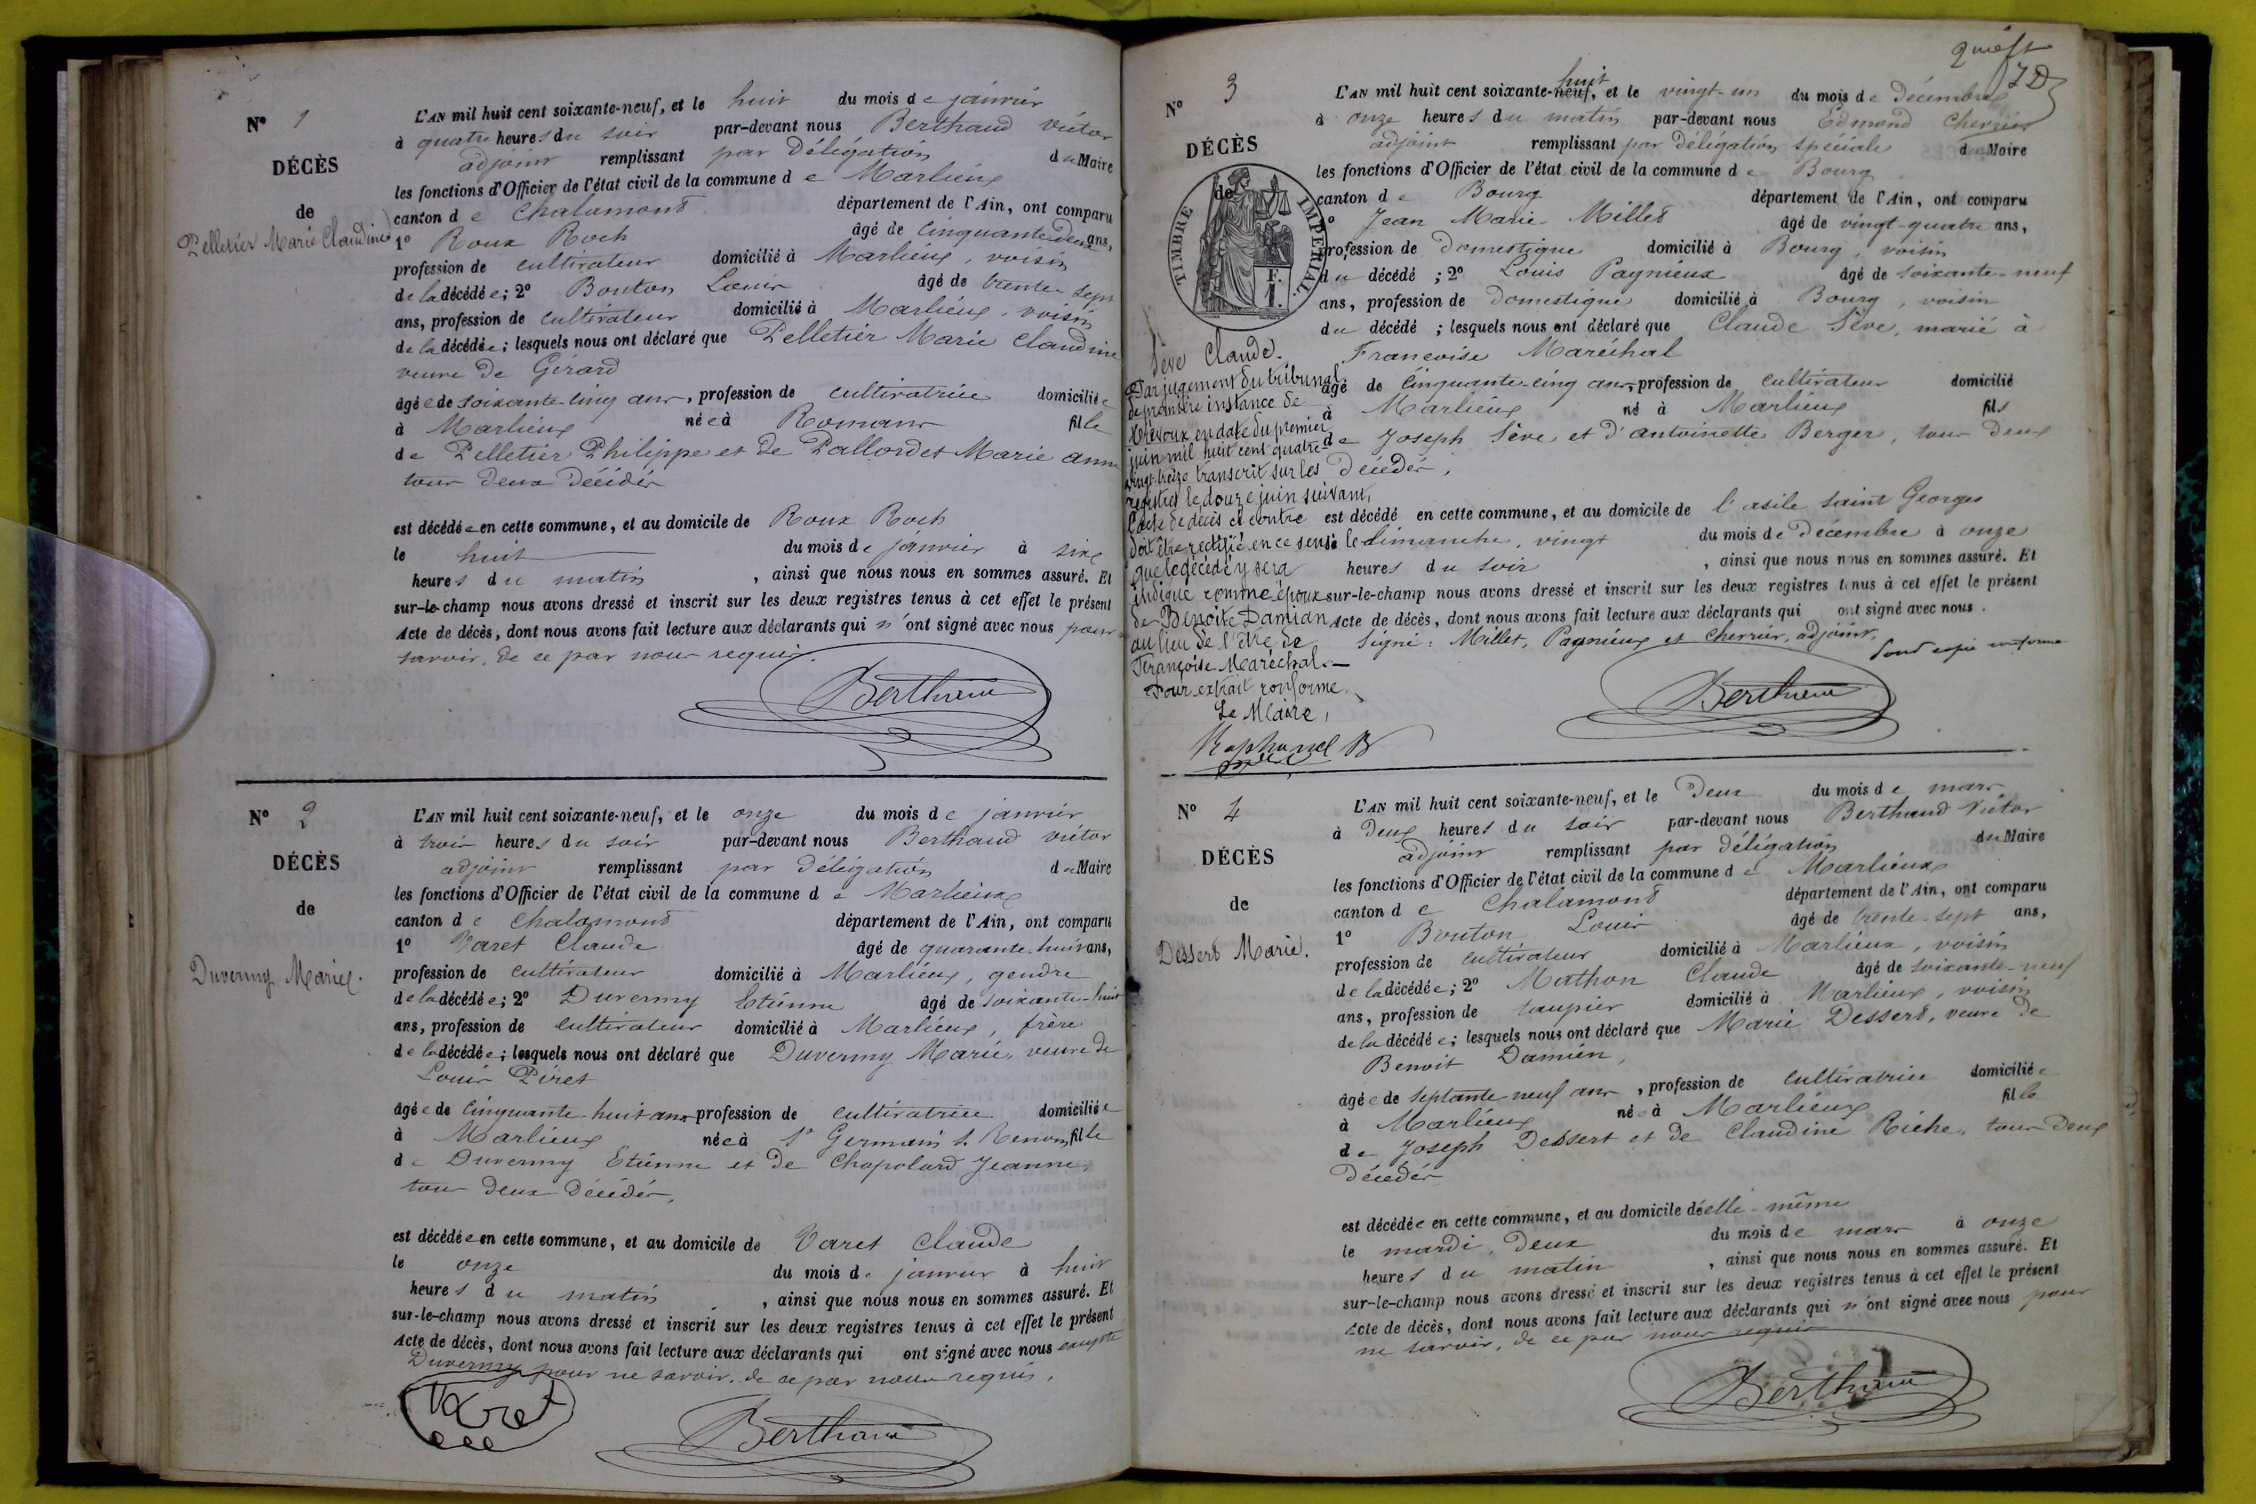 N° 1
DÉCÈS
de
Pelletier Marie Claudine
L'AN mil huit cent soixante-neuf, et le huit du mois de janvier
à quatre heures du soir par-devant nous Berthaud Victor
adjoint remplissant par délégation du Maire
les fonctions d'Officier de l'état civil de la commune de Marlieux
canton de Chalamont département de l'Ain, ont comparu
1° Roux Roch âgé de cinquante deux ans,
profession de cultivateur domicilié à Marlieux, voisin
de la décédée; 2° Bouton Louis âgé de trente-sept
ans, profession de cultivateur domicilié à Marlieux, voisin
de la décédée; lesquels nous ont déclaré que Pelletier Marie Claudine
veuve de Girard
âgée de soixante-cinq ans, profession de cultivatrice domiciliée
à Marlieux née à Romans fille
de Pelletier Philippe et de Pallordet Marie anne
tous deux décédés
est décédée en cette commune, et au domicile de Roux Roch
le huit du mois de janvier à six
heures du matin, ainsi que nous nous en sommes assuré. Et
sur-le-champ nous avons dressé et inscrit sur les deux registres tenus à cet effet le présent
Acte de décès, dont nous avons fait lecture aux déclarants qui n'ont signé avec nous pour
savoir, de ce par nous requis.
Berthaud
N° 2
DÉCÈS
de
Duvernay Marie.
L'AN mil huit cent soixante-neuf, et le onze du mois de janvier
à trois heures du soir par-devant nous Berthaud victor
adjoint remplissant par délégation du Maire
les fonctions d'Officier de l'état civil de la commune de Marlieux
canton de Chalamont département de l'Ain, ont comparu
1° Varet Claude âgé de quarante-huit ans,
profession de cultivateur domicilié à Marlieux, gendre
de la décédée; 2° Duvernay Etienne âgé de soixante-huit
ans, profession de cultivateur domicilié à Marlieux, frère
de la décédée; lesquels nous ont déclaré que Duvernay Marie, veuve de
Louis Piret
âgée de cinquante-huit ans profession de cultivatrice domiciliée
à Marlieux née à St Germain s. Renom fille
de Duvernay Etienne et de Chapolard Jeanne,
tous deux décédés,
est décédée en cette commune, et au domicile de Varet Claude
le onze du mois de janvier à huit
heures du matin, ainsi que nous nous en sommes assuré. Et
sur-le-champ nous avons dressé et inscrit sur les deux registres tenus à cet effet le présent
Acte de décès, dont nous avons fait lecture aux déclarants qui ont signé avec nous excepté
Duvernay pour ne savoir, de ce par nous requis.
Varet
Berthaud
N° 3
DÉCÈS
de
TIMBRE IMPÉRIAL.
F.
1
L'AN mil huit cent soixante-neuf, huit et le vingt-un du mois de Décembre
à onze heures du matin par-devant nous Edmond Cherrier
adjoint remplissant par délégation spéciale du Maire
les fonctions d'Officier de l'état civil de la commune de Bourg
canton de Bourg département de l'Ain, ont comparu
1° Jean Marie Millet âgé de vingt-quatre ans,
profession de domestique domicilié à Bourg, voisin
du décédé; 2° Louis Pagnieux âgé de soixante-neuf
ans, profession de domestique domicilié à Bourg, voisin
du décédé; lesquels nous ont déclaré que Claude Sève, marié à
Françoise Maréchal
âgé de cinquante-cinq ans, profession de cultivateur domicilié
à Marlieux né à Marlieux fils
de Joseph Sève et d'antoinette Berger, tous deux
décédés,
est décédé en cette commune, et au domicile de l'asile Saint Georges
le dimanche, vingt du mois de Décembre à onze
heures du soir, ainsi que nous nous en sommes assuré. Et
sur-le-champ nous avons dressé et inscrit sur les deux registres tenus à cet effet le présent
Acte de décès, dont nous avons fait lecture aux déclarants qui ont signé avec nous.
Signé: Millet, Pagnieux et Cherrier, adjoint.
Pour copie conforme
Berthaud
Sève Claude.
Par jugement du tribunal
de première instance de
Trévoux en date du premier
juin mil huit cent quatre-
vingt treize transcrit sur les
registres le douze juin suivant,
l'acte de décès ci contre
doit être rectifié en ce sens
que le décédé y sera
indiqué comme époux
de Benoite Damian
au lieu de l'être de
Françoise Maréchal.
Pour extrait conforme
Le Maire,
N° 4
DÉCÈS
de
Dessert Marie.
L'AN mil huit cent soixante-neuf, et le deux du mois de mars
à deux heures du soir par-devant nous Berthaud Victor
adjoint remplissant par délégation du Maire
les fonctions d'Officier de l'état civil de la commune de Marlieux
canton de Chalamont département de l'Ain, ont comparu
1° Bouton Louis âgé de trente-sept ans,
profession de cultivateur domicilié à Marlieux, voisin
de la décédée; 2° Mathon Claude âgé de soixante-neuf
ans, profession de taupier domicilié à Marlieux, voisin
de la décédée; lesquels nous ont déclaré que Marie Dessert, veuve de
Benoit Damien,
âgée de septante neuf ans, profession de cultivatrice domiciliée
à Marlieux née à Marlieux fille
de Joseph Dessert et de Claudine Riche, tous deux
décédés
est décédée en cette commune, et au domicile d'elle-même
le mardi, deux du mois de mars à onze
heures du matin, ainsi que nous nous en sommes assuré. Et
sur-le-champ nous avons dressé et inscrit sur les deux registres tenus à cet effet le présent
Acte de décès, dont nous avons fait lecture aux déclarants qui n'ont signé avec nous pour
ne savoir, de ce par nous requis
Berthaud